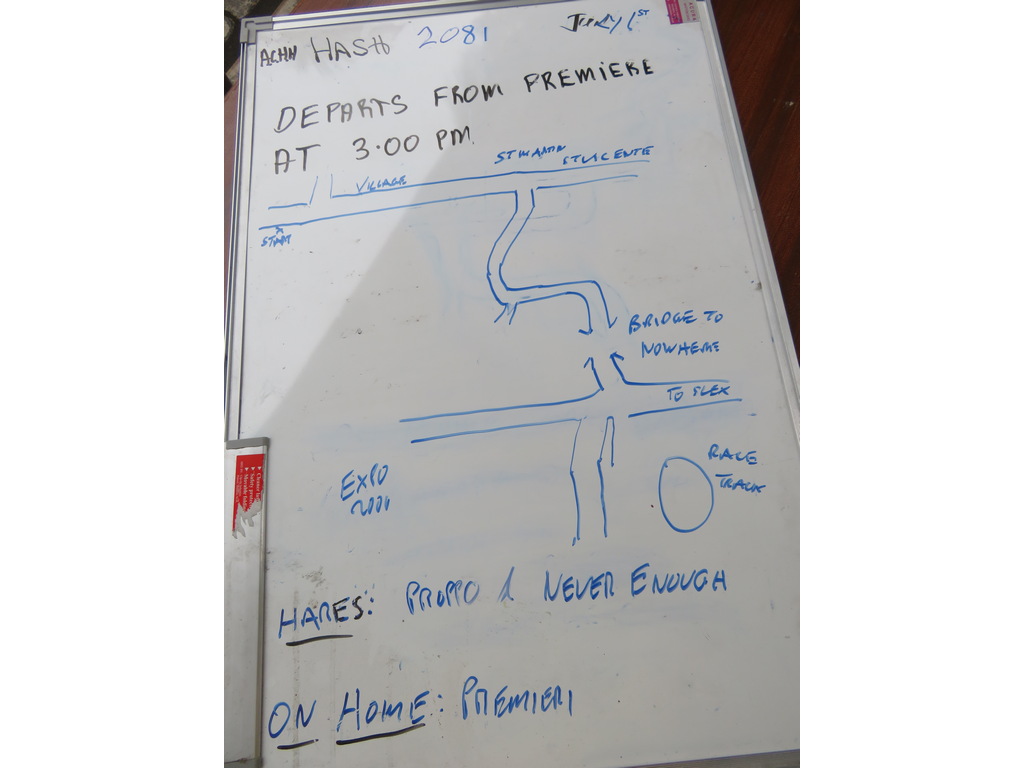 HASH 2081
DEPARTS FROM PREMIERE
AT 3.00 PM
VILLAGE
START
BRIDGE TO
NOWHERE
TO SLEX
EXPO
RACE
TRACK
HARES: PROPPO & NEVER ENOUGH
ON HOME: PREMIERE